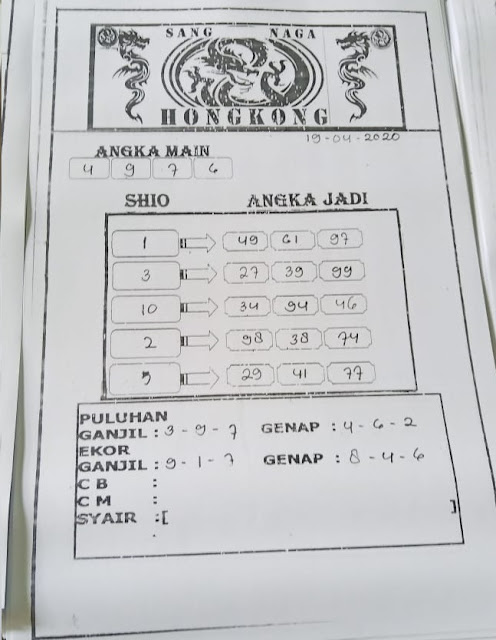 SANG NAGA
HONGKONG
19-04-2020
ANGKA MAIN
4 9 7 6
SHIO ANGKA JADI
1 49 61 97
3 27 39 99
10 34 94 46
2 98 38 74
5 29 41 77
PULUHAN
GANJIL : 3 - 9 - 7 GENAP : 4 - 6 - 2
EKOR
GANJIL : 9 - 1 - 7 GENAP : 8 - 4 - 6
C B :
C M :
SYAIR :[ ]